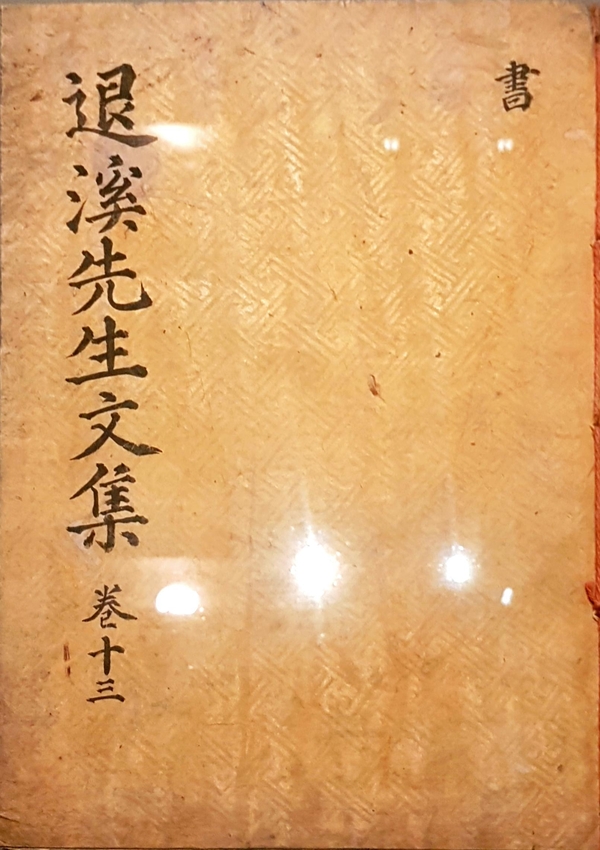 書
退溪先生文集 卷十三